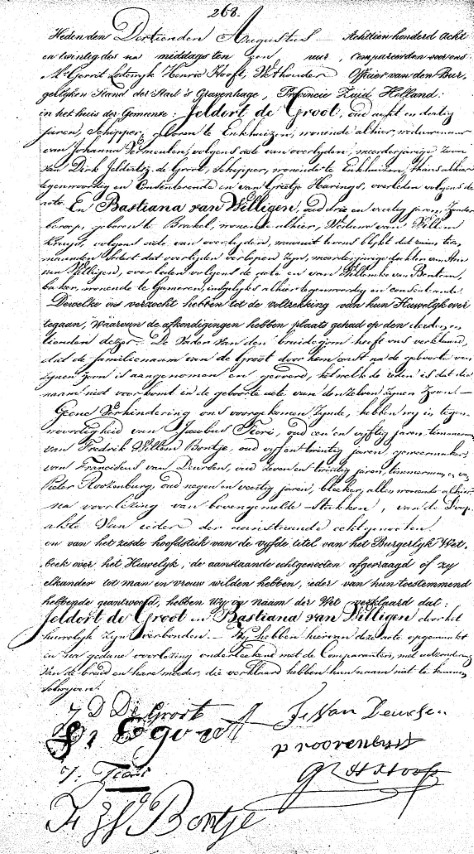 268.
Heden den Dertienden Augustus Achttienhonderd acht
en twintig des na middags ten een uure, compareerden voor ons
Mr Gerrit Lodewyk Henric Hooft, Wethouder Officier van den Bur
gelyken Stand der Stad 's Gravenhage, Provincie Zuid Holland:
in het huis der Gemeente: Jeldert de Groot, oud acht en dertig
jaren, Schipper, geboren te Enkhuizen, wonende alhier, weduwnaar
van Johanna Vermeulen, volgens acte van overlyden, meerderjarige Zoon
van Dirk Jelderts de Groot, Schipper, wonende te Enkhuizen, thans alhier
tegenwoordig en Consenterende en van Grietje Harings, overleden volgens de
acte. En Bastiana van Willigen, oud drie en veertig jaren, Zonder
beroep, geboren te Brakel, wonende alhier, Weduwe van Willem
volgens acte van overlyden, waaruit komt blykt dat ruim tien
maanden sedert dat overlyden verlopen zyn, meerderjarige dochter van
van Willigen, overleden volgens de acte en van Willemke van Bentum,
bakster, wonende te Gameren, insgelyks alhier tegenwoordig en consenterende
Dewelke ons verzocht hebben tot de voltrekking van hun Huwelyk over
tegaan, Waarvan de afkondigingen hebben plaats gehad op den derden en
tienden dezer. De Vader van den bruidegom heeft ons verklaard,
dat de familienaam van de Groot door hem eerst na de geboorte van
zynen zoon is aangenomen en gevoerd, het welk de reden is dat die
naam niet voorkomt in de geboorte acte van denzelven zynen Zoon
Geene Verhindering ons voorgekomen zynde, hebben wy in tegen
woordigheid van Jacobus Fiore, oud een en vyftig jaren timmerman
van Fredrik Willem Bontje, oud vyf en twintig jaren, geweermaker
van Franciscus van Deurzen, oud zeven en twintig jaren, timmerman, en
Pieter Roozenburg, oud negen en veertig jaren, bleeker, alle wonende alhier
na voorlezing van bovengemelde stukken, van de Doop
akte Van iedere der aanstaande echtgenoten
en van het zesde hoofdstuk van de vyfde titel van het Burgerlyk Wet
boek over het Huwelyk, de aanstaande echtgenooten afgevraagd of zy
elkander tot man en vrouw wilden hebben, ieder van hun toestemmend
hebbende geantwoord, hebben Wy in naam der Wet verklaard dat:
Jeldert de Groot en Bastiana van Willigen door het
huwelyk zyn verbonden. Wy hebben hiervan deze acte opgemaakt
en na gedane voorlezing onderteekend met de Comparanten, met uitzondering
van de bruid en hare moeder, die verklaard hebben hun naam niet te kunnen
schryven.
J D De Groot
Fs Van Deursen
P Roozenburg
J. Fiore
GLHHooft
F W Bontje